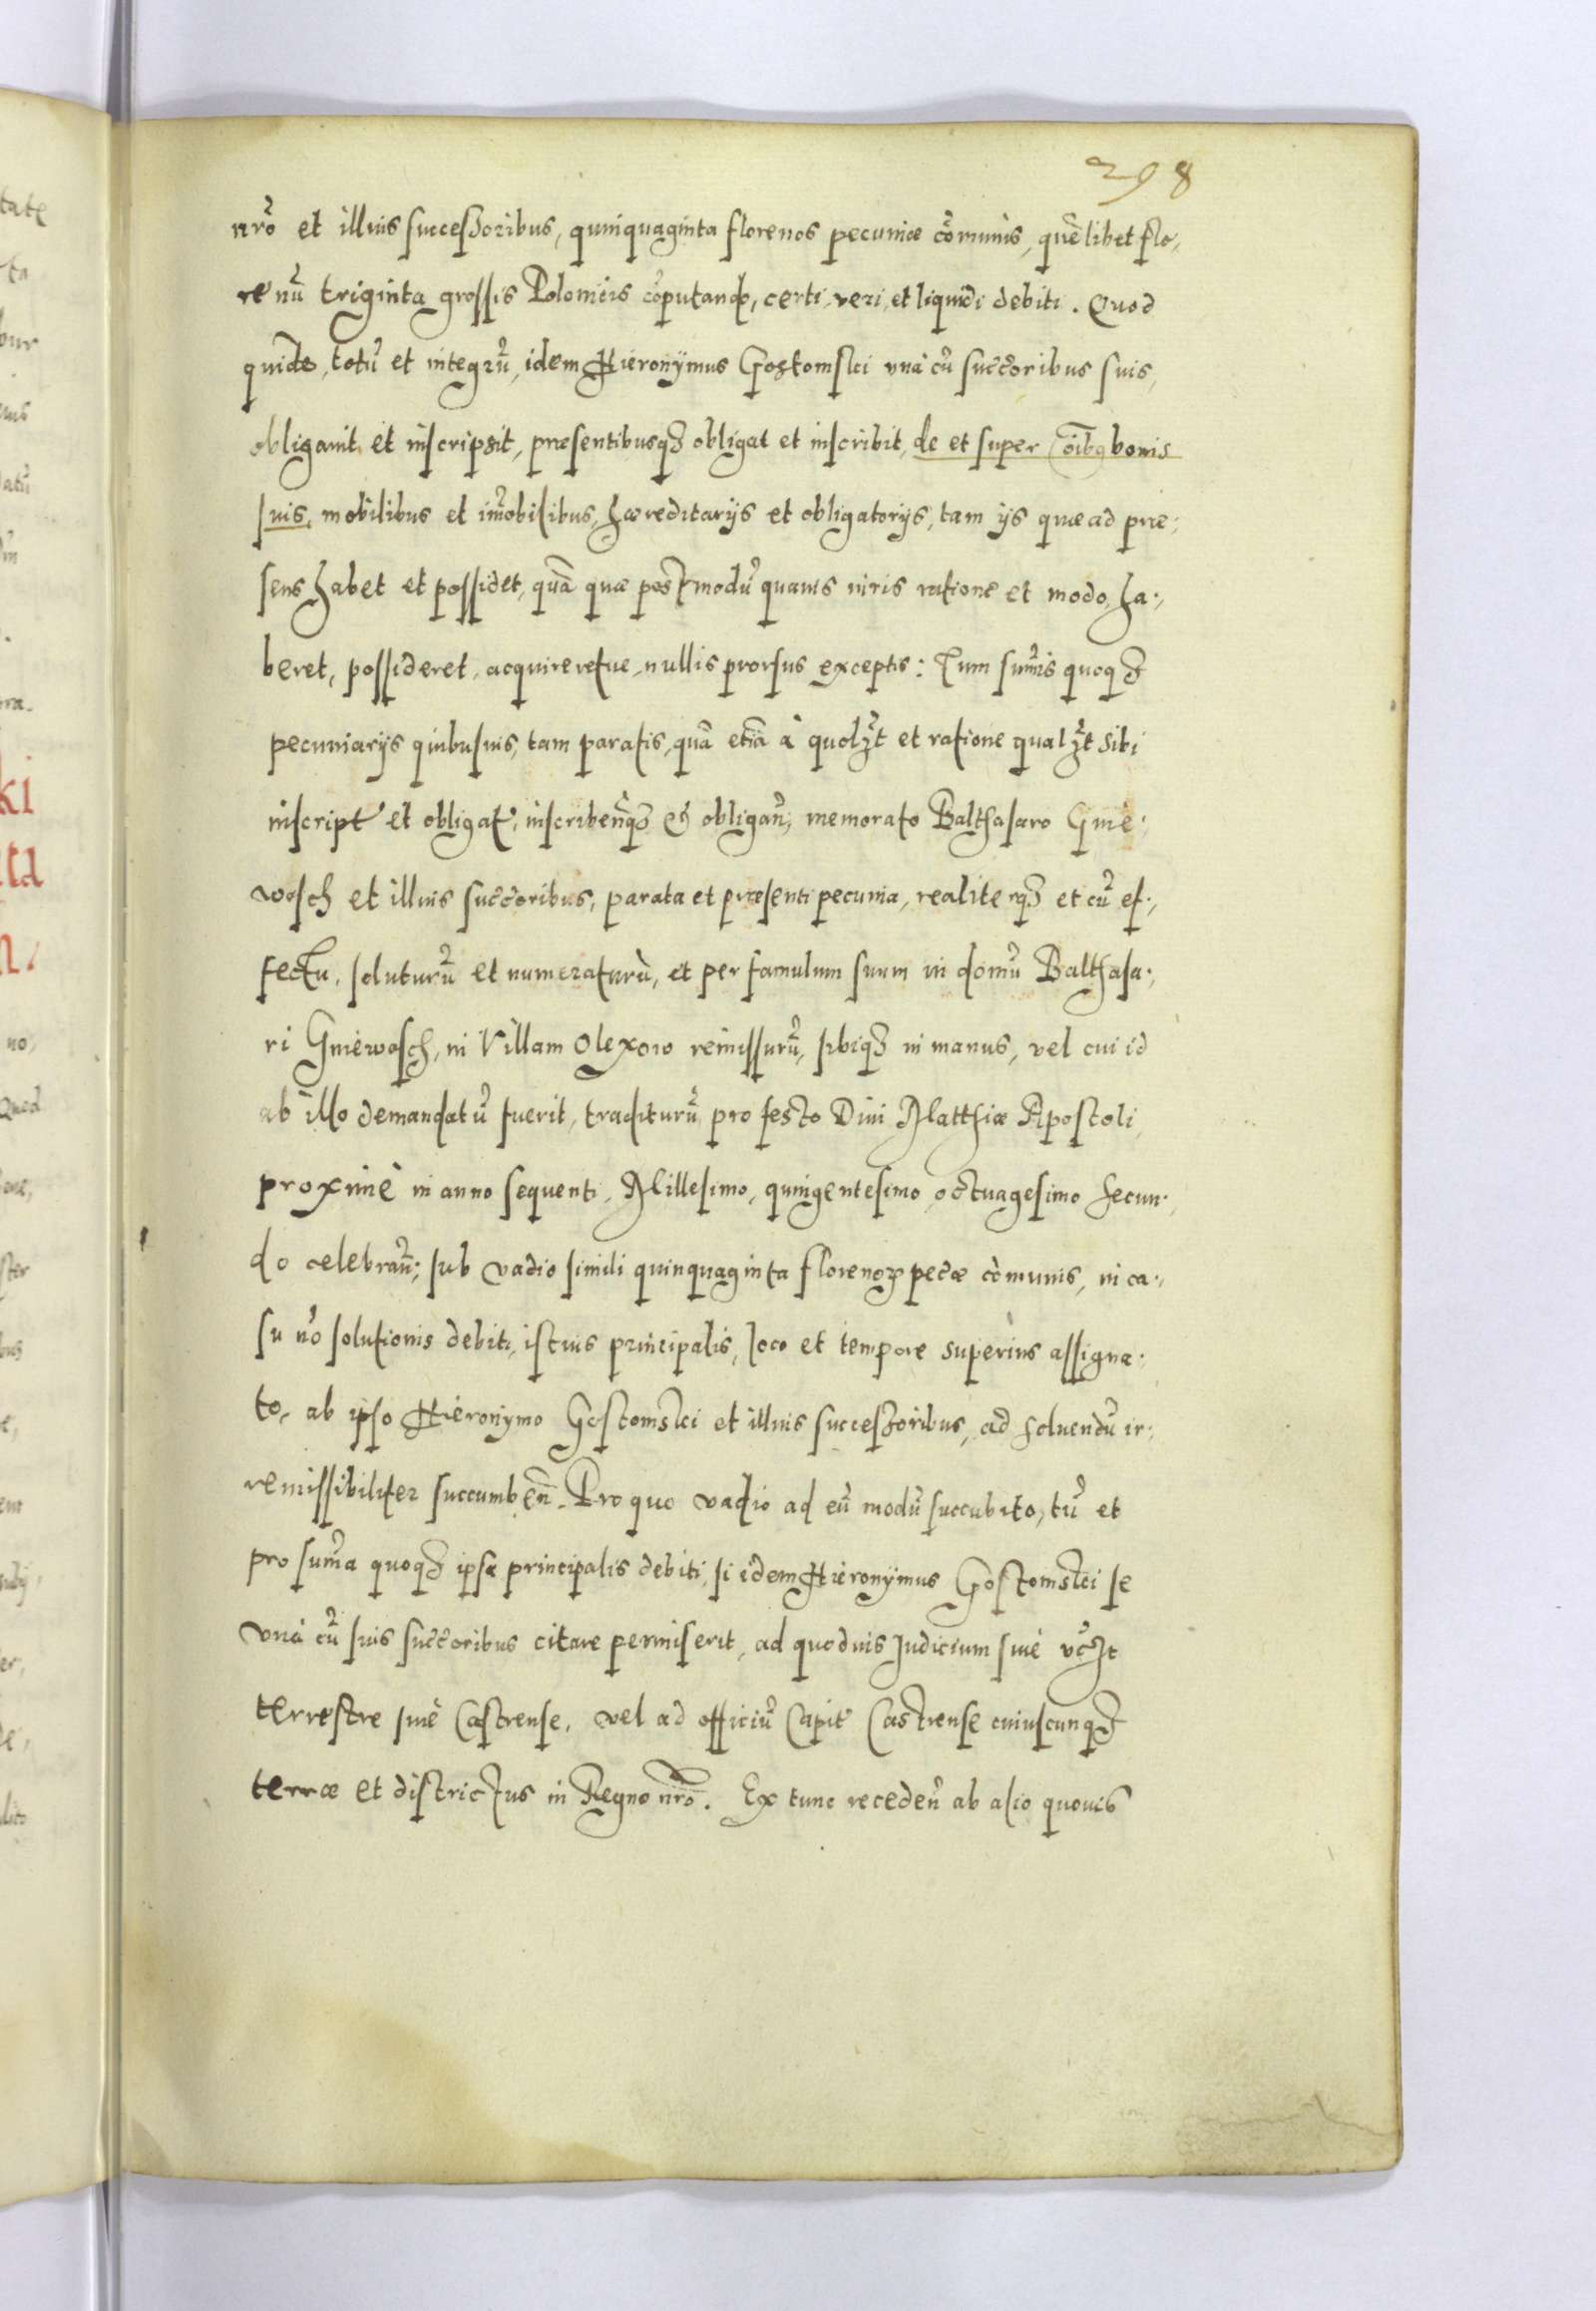 298
nr̃o et illius successoribus, quinquaginta florenos pecuniæ cõmunis, quẽlibet flo,
renũ triginta grossis Polonicis cõputando, certi, veri, et liquidi debiti. Quod
quidẽ, totũ et integrũ, idem Hieronymus Gostomski unà cũ succ̃oribus suis,
obligauit et inscripsit, præsentibusq₃ obligat et inscribit, de et super oĩbus bonis
suis, mobilibus et im̃obilibus, hæreditarijs et obligatorijs, tam ijs quæ ad præ,
sens habet et possidet, quã quæ postmodũ quauis iuris ratione et modo, ha,
beret, possideret, acquireretue, nullis prorsus exceptis: Tum sum̃is quoq₃
pecuniarijs quibusuis, tam paratis, quã etiã à quolꝫt et ratione qualꝫt sibi
inscript̃ et obligat̃, inscribeñq₃ et obligañ, memorato Balthasaro Gnie,
wosch et illius succ̃oribus, parata et præsenti pecunia, realiterq₃ et cũ ef,
fectu, soluturũ et numeraturũ, et per famulum suum in domũ Balthasa,
ri Gniewosch, in Villam Olexow remissurũ, sibiq₃ in manus, vel cui id
ab illo demandatũ fuerit, traditurũ, pro festo Diui Matthiæ Apostoli,
proximè in anno sequenti, Millesimo, quingentesimo, octuagesimo secun,
do celebrañ; sub vadio simili quinquaginta florenoꝝ pec̃æ cõmunis, in ca,
su nõ solutionis debiti, istius principalis, loco et tempore superius assigna,
to, ab ipso Hieronymo Gostomski et illius successoribus, ad soluendũ ir,
remissibiliter succumbeñ. Pro quo vadio ad eũ modũ succubito, tũ et
pro sum̃a quoq₃ ipsa principalis debiti, si idem Hieronymus Gostomski se
unà cũ suis succ̃oribus citare permiserit, ad quoduis Judicium siuè vc̃ꝫt
terrestre siuè Castrense, vel ad officiũ Capit̃ Castrense cuiuscunq₃
terræ et districtus in Regno nr̃o. Ex tunc recedeñ ab alio quouis